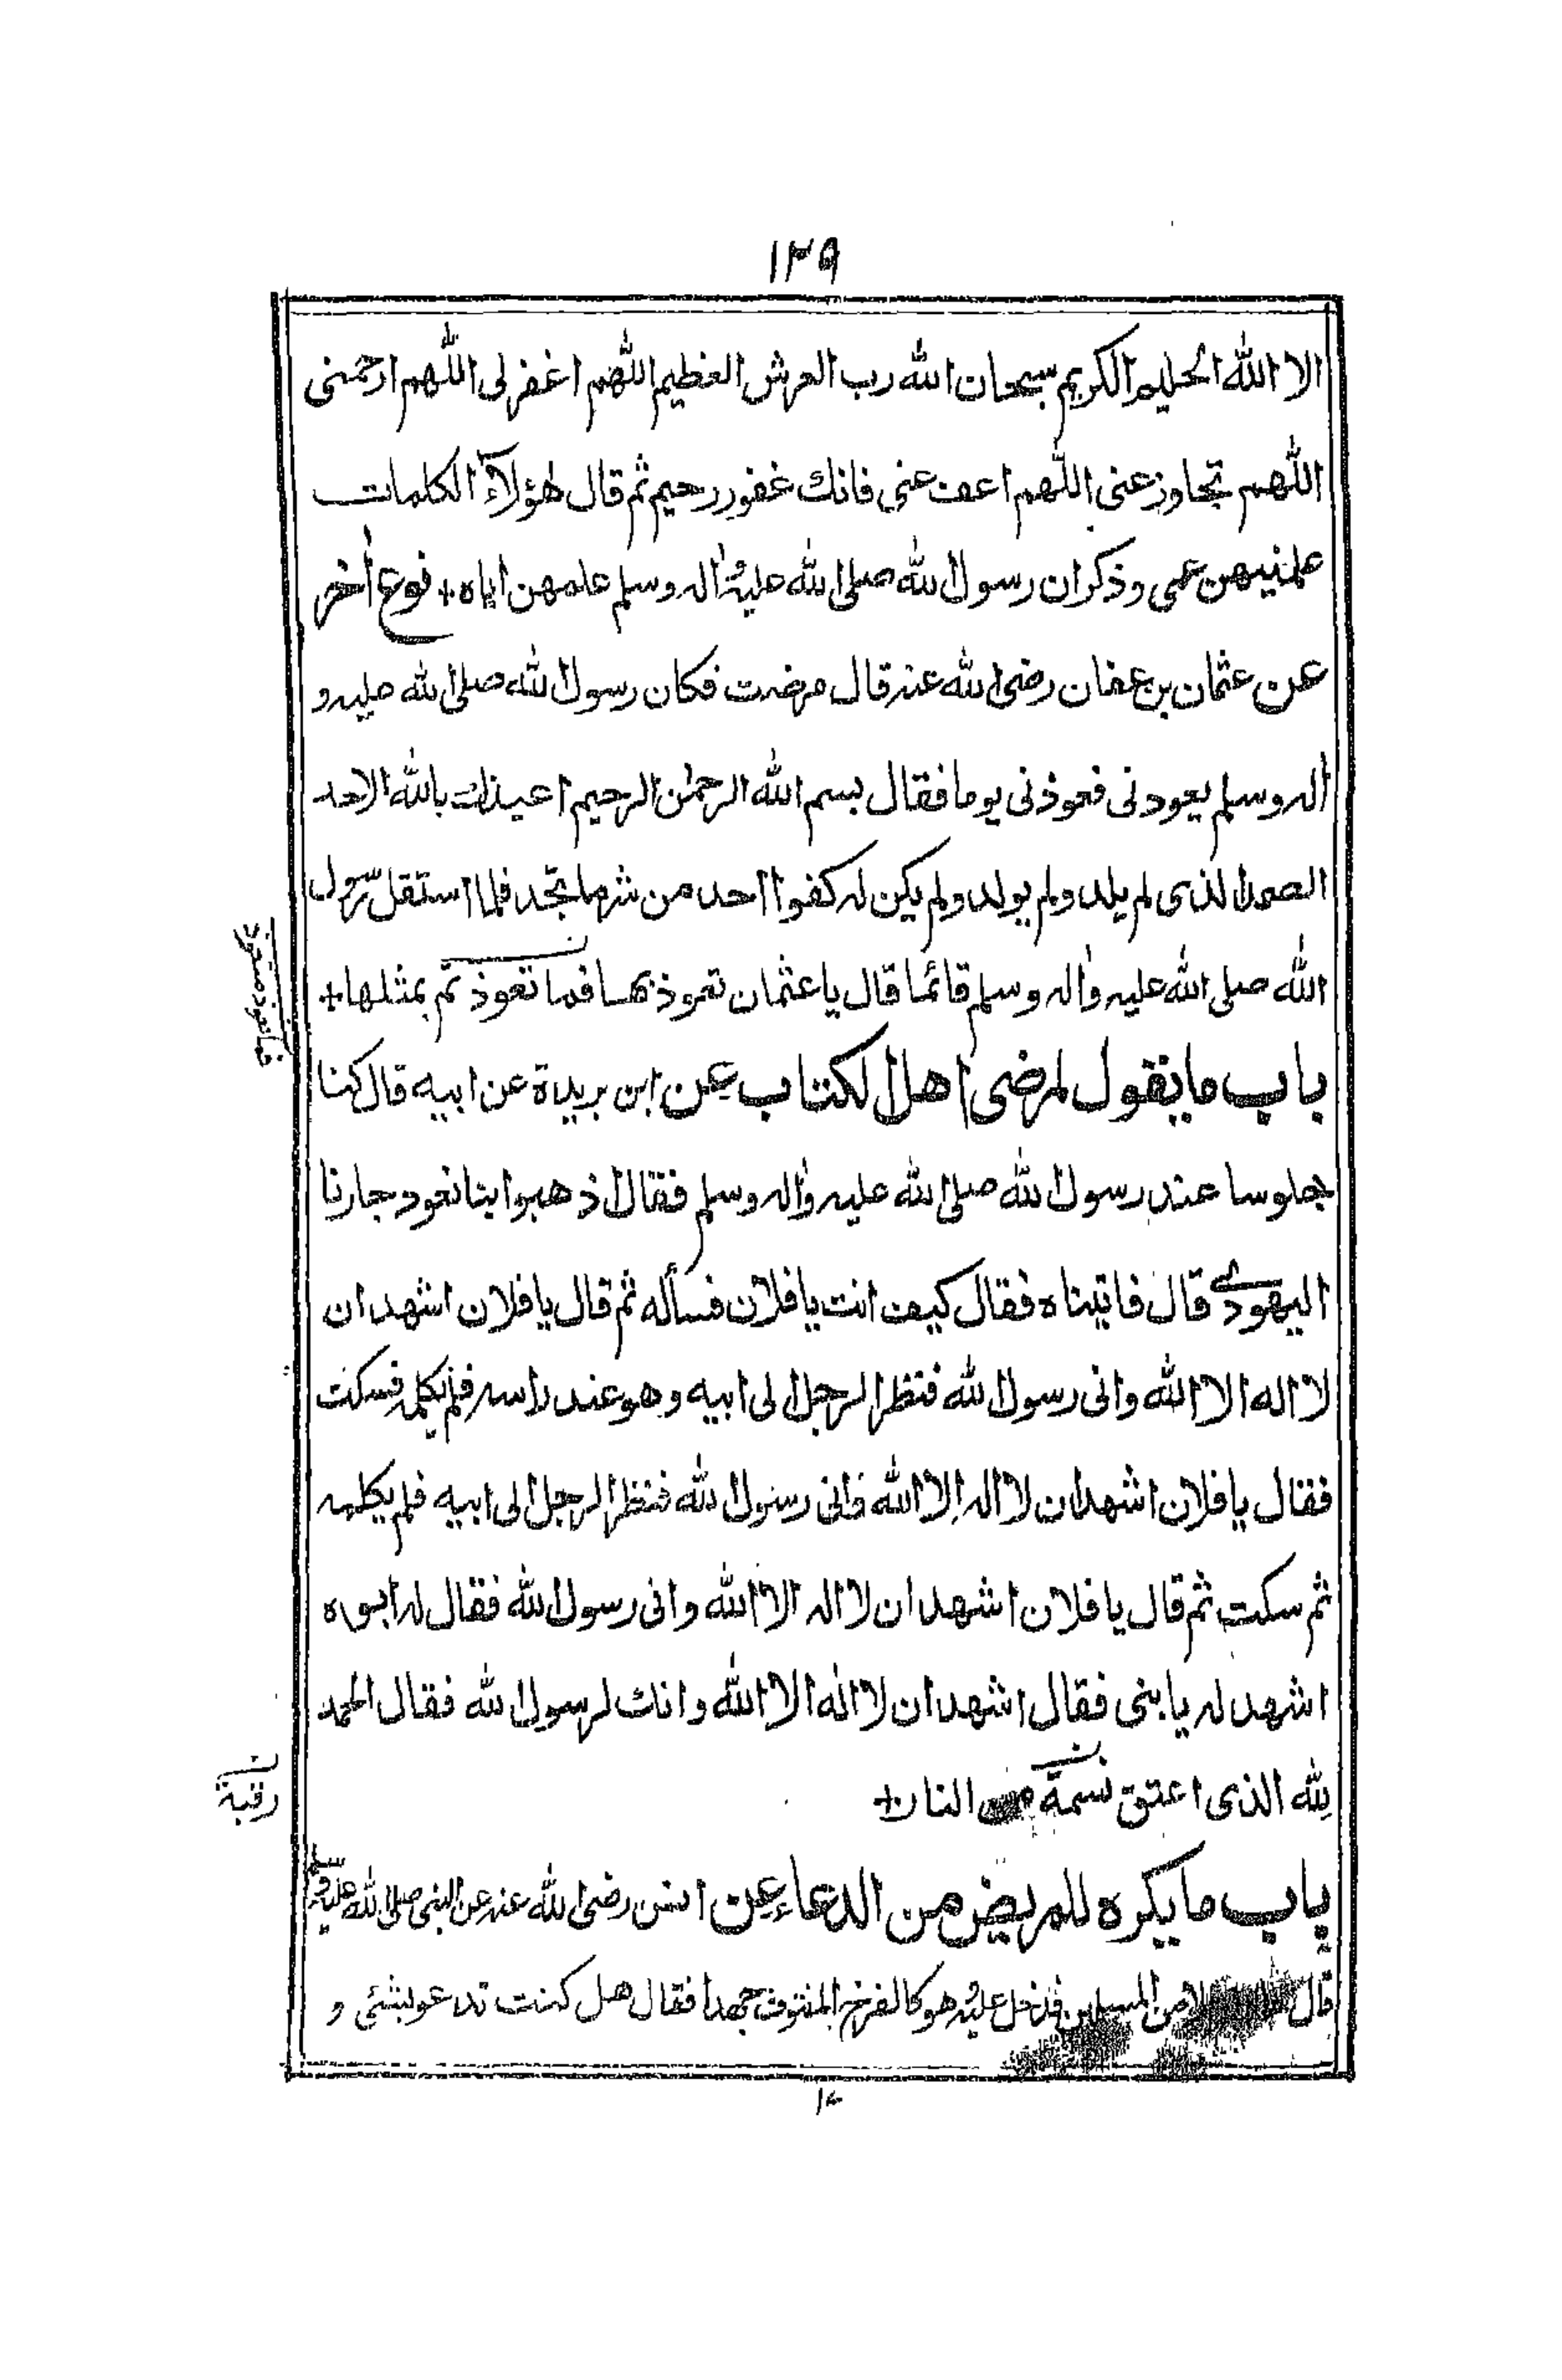 ١٢٩
الا الله الحليم الكريم سبحان الله رب العرش العظيم اللهم اغفر لى اللّٰهم ارحمنى
اللّٰهم تجاوز عنى اللّٰهم اعف عنى فانك غفور رحيم ثم قال هٰؤلآء الكلمات
علمنيهن عمى وذكر ان رسول الله صلى الله عليه وٰاله وسلم علمهن اياه + نوع اٰخر
عن عثمان بن عفان رضى الله عنه قال مرضت فكان رسول الله صلى الله عليه و
اٰله وسلم يعودنى فعوذنى يوما فقال بسم الله الرحمٰن الرحيم اعيذك بالله الاحد
الصمد الذى لم يلد ولم يولد ولم يكن له كفوا احد من شر ما تجد فلما استقل رسول
الله صلى الله عليه وٰاله وسلم قائما قال يا عثمان تعوذ بها فما تعوذتم بمثلها +
فما تعوذ متعوذ
باب ما يقول لمرضى اهل الكتاب عن ابن بريدة عن ابيه قال كنا
جلوسا عند رسول الله صلى الله عليه وٰاله وسلم فقال اذهبوا بنا نعود جارنا
اليهودى قال فاتيناه فقال كيف انت يا فلان فسأله ثم قال يا فلان اشهد ان
لا اله الا الله وانى رسول الله فنظر الرجل الى ابيه وهو عند راسه فلم يكلمه فسكت
فقال يا فلان اشهد ان لا اله الا الله وانى رسول الله فنظر الرجل الى ابيه فلم يكلمه
ثم سكت ثم قال يا فلان اشهد ان لا اله الا الله وانى رسول الله فقال له ابوه
اشهد له يا بنى فقال اشهد ان لا اله الا الله وانك لرسول الله فقال الحمد
لله الذى اعتق نسمة من النار +
رقبة
باب ما يكره للمريض من الدعاء عن انس رضى الله عنه عن النبى صلى الله عليه وسلم
قال من المسلمين فدخل عليه وهو كالفرخ المنتوف جهدا فقال هل كنت تدعو بشئى و
١٧